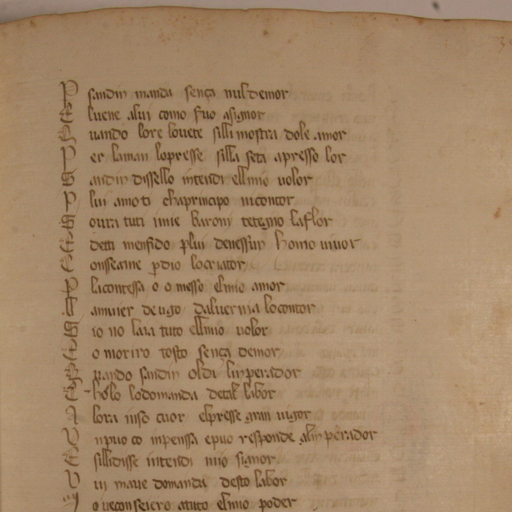 P sandin manda sença nul demor
E luene alui como suo signor
E uando lore louete silli mostra dole amor
P er laman lopresse silla seti apresso lor
S andin dissello intendi ellmio uolor
P lui amoti chaprincipo uicontor
S oura tuti imie baroni tetegno la flor
E deti menfido plui deuessun homo uiuor
C onseame pdio locriator
P lacontessa o o messo elmio amor
T amuier deugo daluernia locontor
S io no lara tuto ellmio uolor
E o moriro tosto sença demor
E pando sandin oldi linperador
E holo lodomanda detal labor
A lora inso cuor elpresse gran uigor
V npuo co inpenssa epuo responde alinperador
E sillidisse intendi mio signor
V ui maue domandu desto labor
I o ueconseiero atuto elmio poder